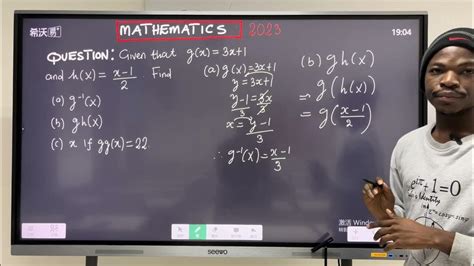 希沃易+
MATHEMATICS 2023
19:04
QUESTION: Given that g(x) = 3x+1
and h(x) = x-1/2. Find
(a) g⁻¹(x)
(b) gh(x)
(c) x if gg(x) = 22
(a) g(x) = 3x+1
y = 3x+1
y-1/3 = 3x/3
x = y-1/3
∴ g⁻¹(x) = x-1/3
(b) gh(x)
= g(h(x))
= g(x-1/2)
seewo
激活 Window
e^iπ+1=0